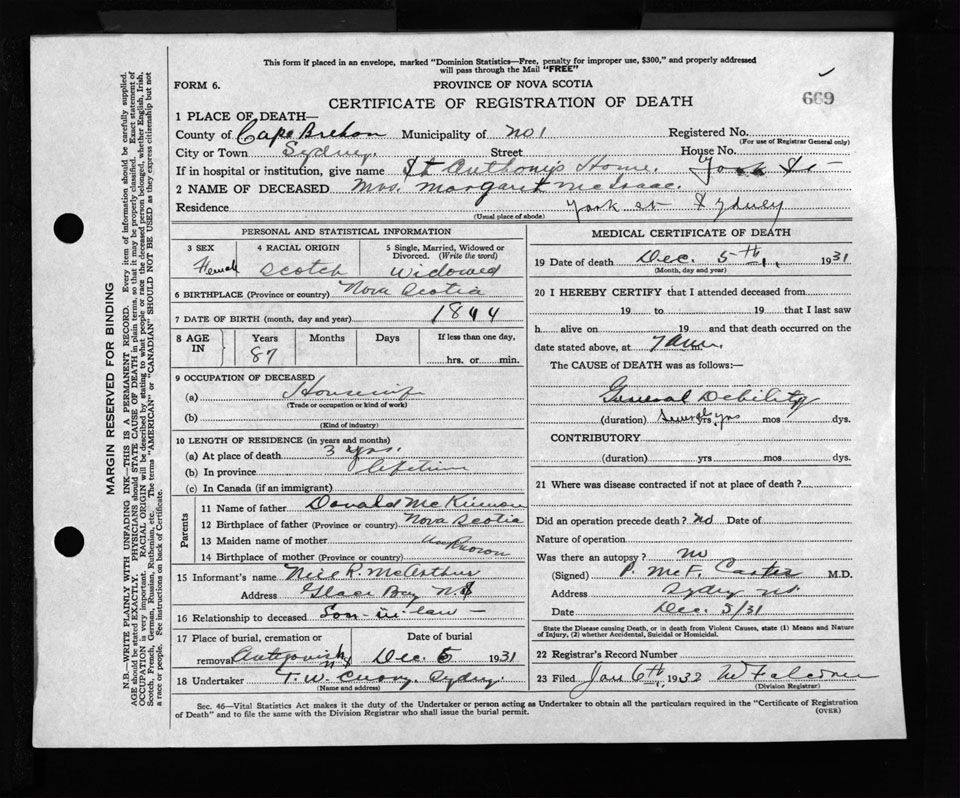 This form if placed in an envelope, marked "Dominion Statistics—Free, penalty for improper use, $300," and properly addressed
will pass through the Mail "FREE"
FORM 6.
PROVINCE OF NOVA SCOTIA
CERTIFICATE OF REGISTRATION OF DEATH
669
1 PLACE OF DEATH—
County of Cape Breton Municipality of No 1 Registered No.
(For use of Registrar General only)
City or Town Sydney. Street House No.
If in hospital or institution, give name St Anthony's Home. York St
2 NAME OF DECEASED Mrs. Margaret McIsaac.
Residence York St Sydney
(Usual place of abode)
PERSONAL AND STATISTICAL INFORMATION
3 SEX 4 RACIAL ORIGIN 5 Single, Married, Widowed or
Divorced. (Write the word)
Female Scotch Widowed
6 BIRTHPLACE (Province or country) Nova Scotia
7 DATE OF BIRTH (month, day and year) 1844
8 AGE IN Years Months Days If less than one day,
87 hrs. or min.
9 OCCUPATION OF DECEASED
(a) Housewife
(Trade or occupation or kind of work)
(b)
(Kind of industry)
10 LENGTH OF RESIDENCE (in years and months)
(a) At place of death 3 yrs.
(b) In province lifetime
(c) In Canada (if an immigrant)
Parents
11 Name of father Donald McKinnon
12 Birthplace of father (Province or country) Nova Scotia
13 Maiden name of mother Unknown
14 Birthplace of mother (Province or country)
15 Informant's name Neil R. McArthur
Address Glace Bay N.S
16 Relationship to deceased Son-in-law-
17 Place of burial, cremation or Date of burial
removal Antigonish N.S Dec 5 1931
18 Undertaker T. W. Curry, Sydney.
(Name and address)
MEDICAL CERTIFICATE OF DEATH
19 Date of death Dec. 5th, 1931
(Month, day and year)
20 I HEREBY CERTIFY that I attended deceased from
19 to 19 that I last saw
h alive on 19 and that death occurred on the
date stated above, at 7 a.m.
The CAUSE of DEATH was as follows:—
General Debility
(duration) Several yrs mos dys.
CONTRIBUTORY
(duration) yrs mos dys.
21 Where was disease contracted if not at place of death?
Did an operation precede death? No Date of
Nature of operation
Was there an autopsy? No
(Signed) P. McF. Carter M.D.
Address Sydney N.S.
Date Dec. 5/31
State the Disease causing Death, or in death from Violent Causes, state (1) Means and Nature
of Injury, (2) whether Accidental, Suicidal or Homicidal.
22 Registrar's Record Number
23 Filed Jan 6th, 1932 W Falconer
(Division Registrar)
Sec. 46—Vital Statistics Act makes it the duty of the Undertaker or person acting as Undertaker to obtain all the particulars required in the "Certificate of Registration
of Death" and to file the same with the Division Registrar who shall issue the burial permit.
(OVER)
MARGIN RESERVED FOR BINDING
N.B.—WRITE PLAINLY WITH UNFADING INK—THIS IS A PERMANENT RECORD. Every item of information should be carefully supplied.
AGE should be stated EXACTLY. PHYSICIANS should STATE CAUSE OF DEATH in plain terms, so that it may be properly classified. Exact statement of
OCCUPATION is very important. RACIAL ORIGIN will be described by stating to what people or race the deceased person belonged, whether English, Irish,
Scotch, French, German, Russian, Ruthenian, etc. The terms "AMERICAN" or "CANADIAN" SHOULD NOT BE USED as they express citizenship but not
a race or people. See instructions on back of Certificate.